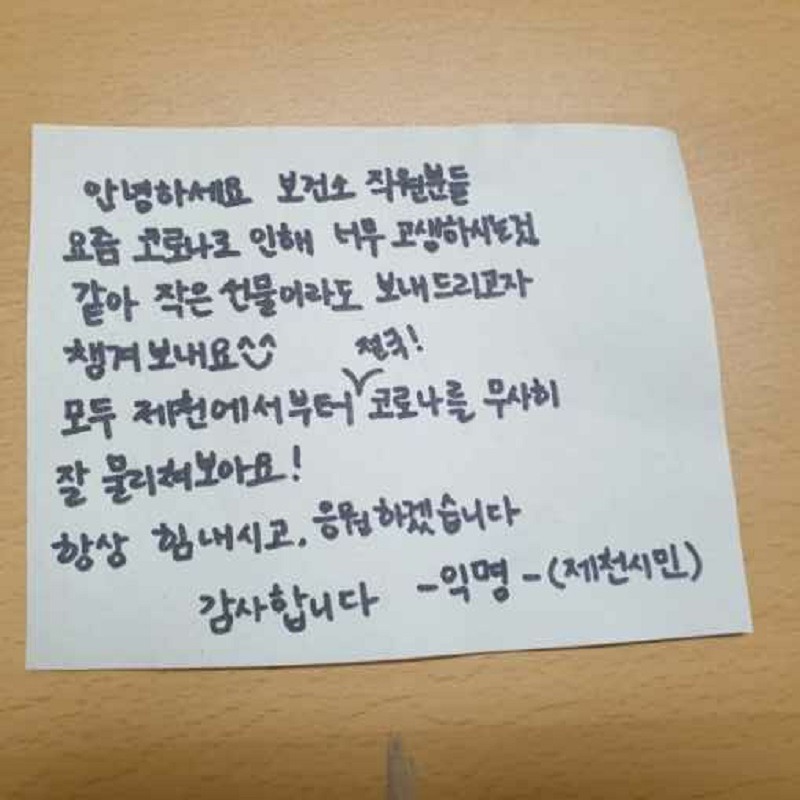 안녕하세요 보건소 직원분들
요즘 코로나로 인해 너무 고생하시는것
같아 작은 선물이라도 보내드리고자
챙겨보내요^^
전국!
모두 제천에서부터 코로나를 무사히
잘 물리쳐보아요!
항상 힘내시고, 응원하겠습니다
감사합니다 -익명-(제천시민)